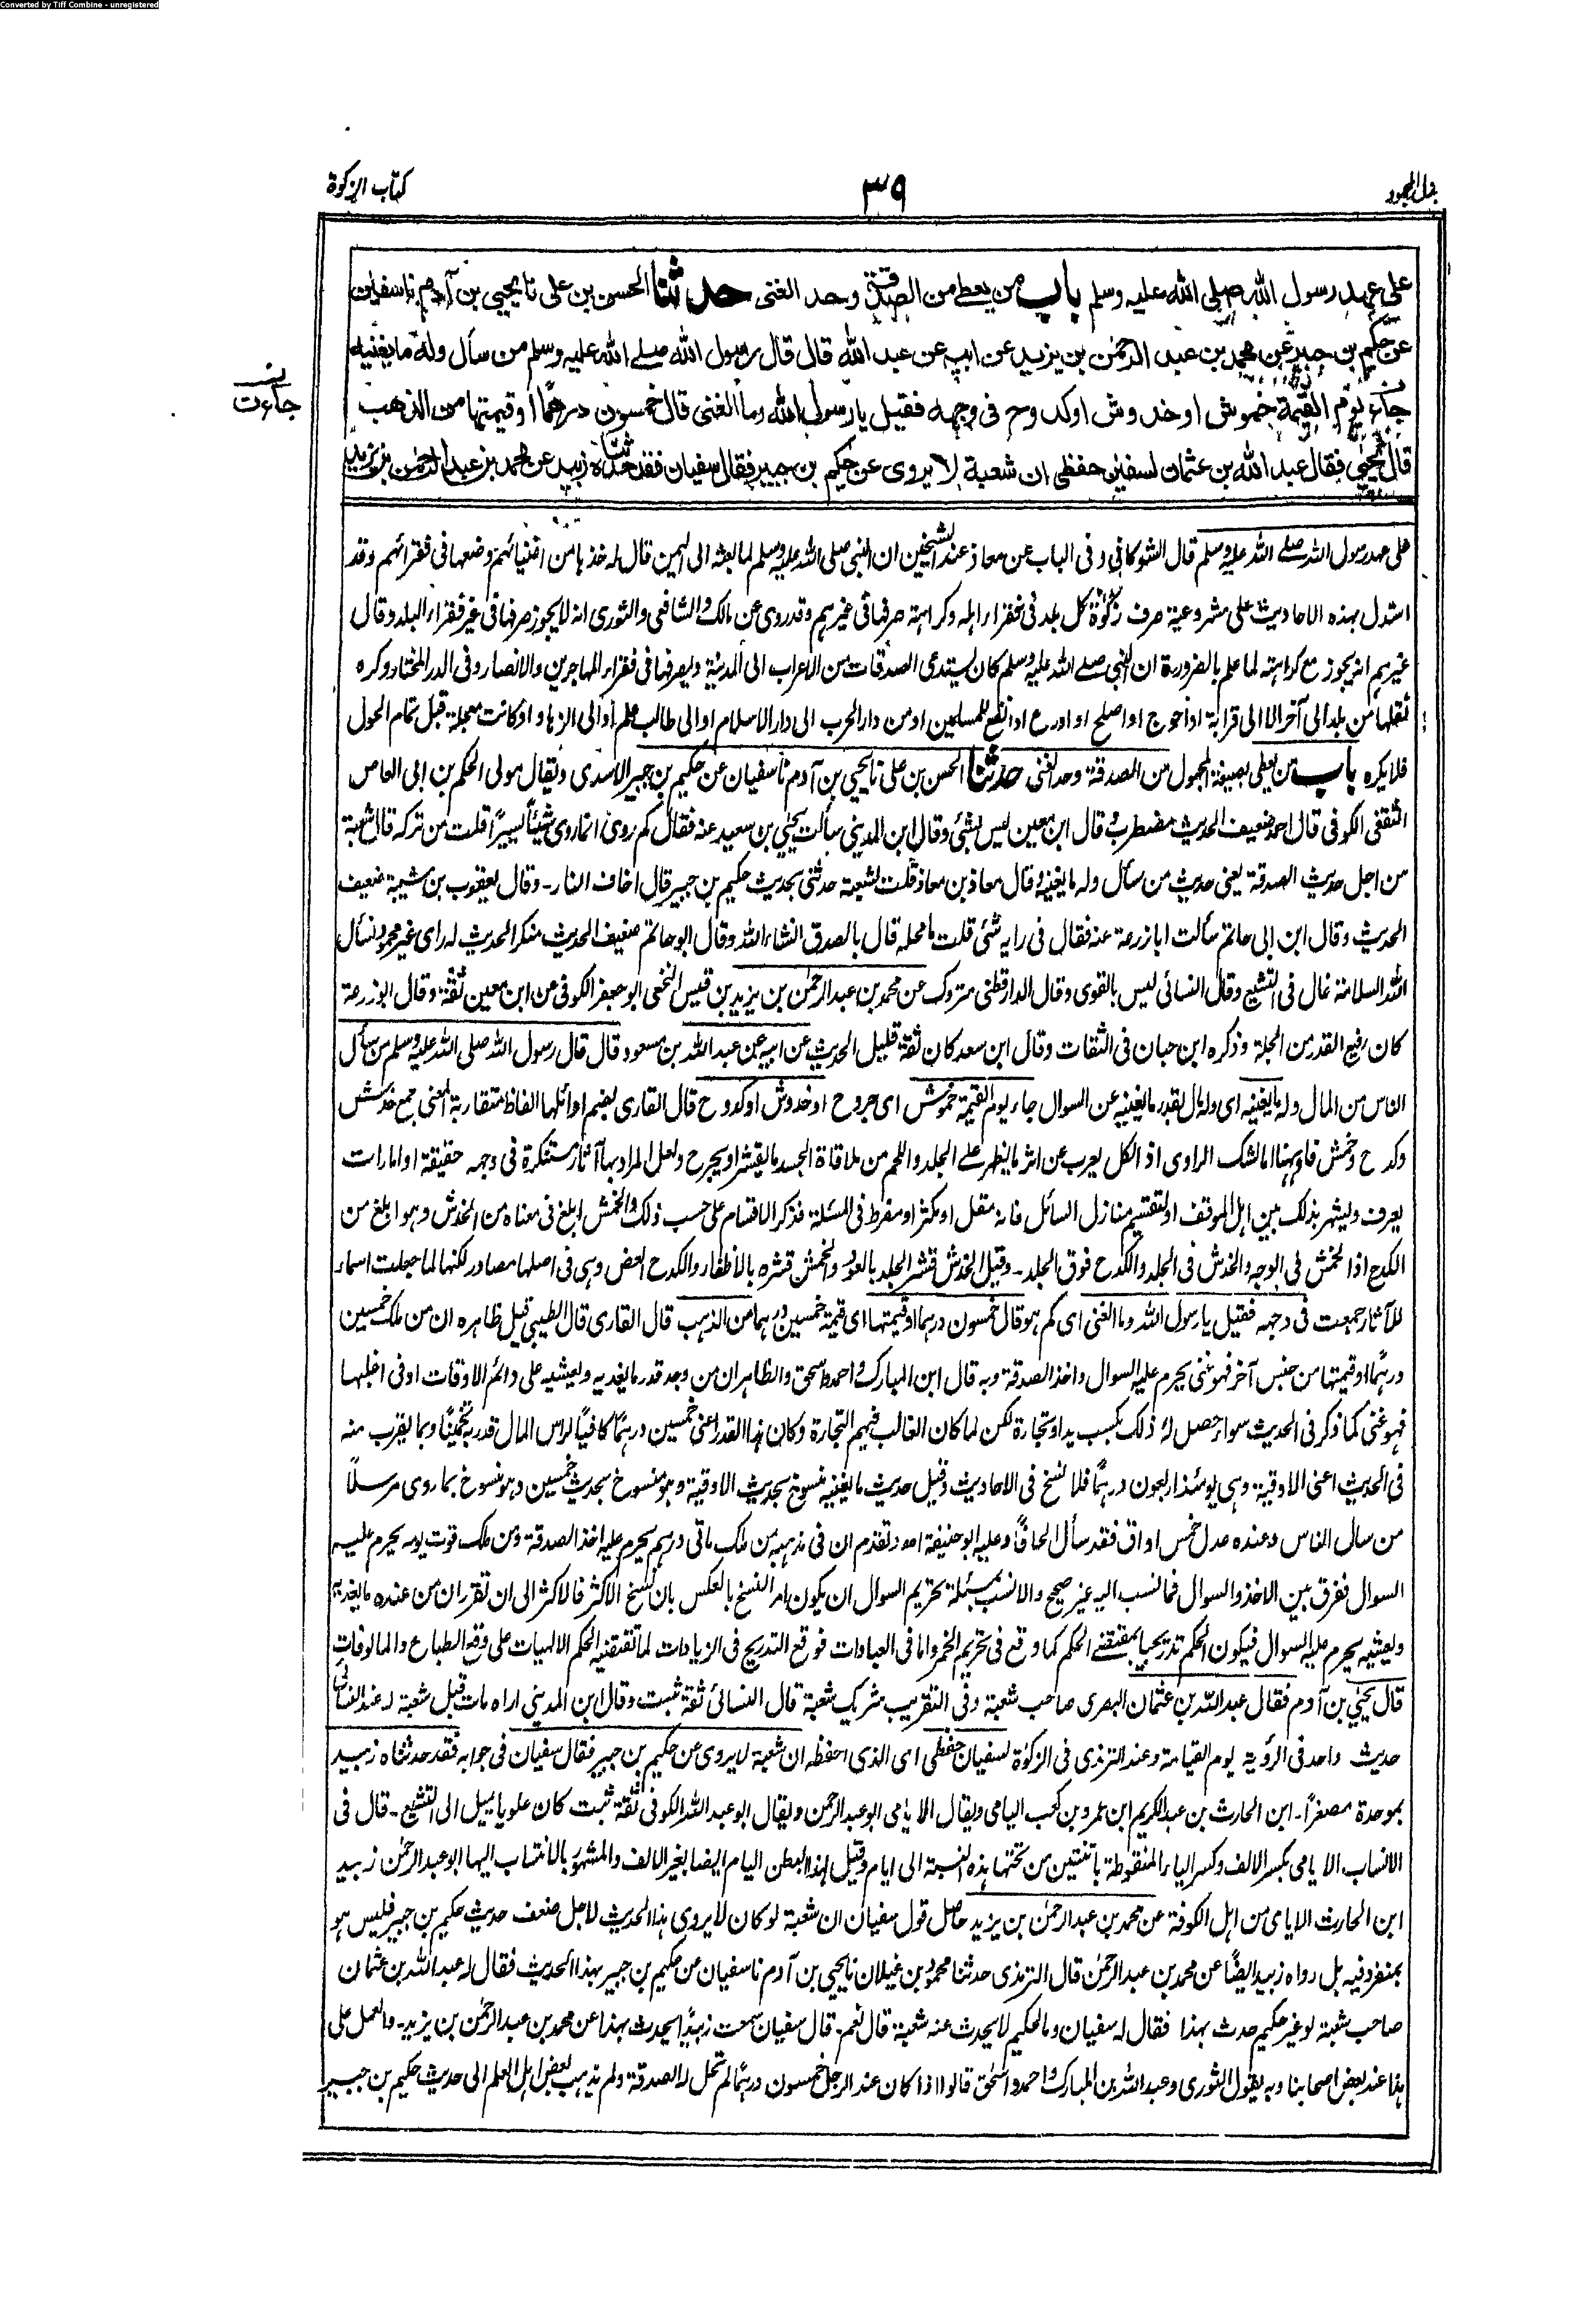 Converted by Tiff Combine - unregistered
بذل المجهود
٣٩
كتاب الزكوة
على عهد رسول الله صلى الله عليه وسلم باب من يعطى من الصدقة وحد الغنى حدثنا الحسن بن على نا يحيى بن آدم نا سفيان
عن حكيم بن جبير عن محمد بن عبد الرحمن بن يزيد عن ابيه عن عبد الله قال قال رسول الله صلے الله عليه وسلم من سأل وله ما يغنيه
جاءت
جاء يوم القيمة خموش او خدوش او كدوح فى وجهه فقيل يا رسول الله وما الغنى قال خمسون درهمًا او قيمتها من الذهب
قال يحيى فقال عبد الله بن عثمان لسفين حفظى ان شعبة لا يروى عن حكيم بن جبير فقال سفيان فقد حدثناه زبيد عن محمد بن عبد الرحمن بن يزيد
على عهد رسول الله صلے الله عليه وسلم قال الشوكانى وفى الباب عن معاذ عند الشيخين ان النبى صلى الله عليه وسلم لما بعثه الى اليمن قال له خذها من اغنيائهم وضعها فى فقرائهم وقد
استدل بهذه الاحاديث على مشروعية صرف زكوة كل بلد فى فقراء اهله وكراهة صرفها فى غيرهم وقد روى عن مالك والشافعى والثورى انه لا يجوز صرفها فى غير فقراء البلد وقال
غيرهم انه يجوز مع كراهته لما علم بالضرورة ان النبى صلے الله عليه وسلم كان يستدعى الصدقات من الاعراب الى المدينة ويصرفها فى فقراء المهاجرين والانصار وفى الدر المختار وكره
نقلها من بلد الى آخر الا الى قرابة او احوج او اصلح او اورع او انفع للمسلمين او من دار الحرب الى دار الاسلام او الى طالب علم او الى الزهاد او كانت معجلة قبل تمام الحول
فلا يكره باب من يعطى بصيغة المجهول من الصدقة وحد الغنى حدثنا الحسن بن على نا يحيى بن آدم نا سفيان عن حكيم بن جبير الاسدى ويقال مولى الحكم بن ابى العاص
الثقفى الكوفى قال احمد ضعيف الحديث مضطرب وقال ابن معين ليس بشئ وقال ابن المدينى سألت يحيى بن سعيد عنه فقال كم روى انما روى شيئًا يسيرًا قلت من تركه قال شعبة
من اجل حديث الصدقة يعنى حديث من سأل وله ما يغنيه وقال معاذ بن معاذ قلت لشعبة حدثنى بحديث حكيم بن جبير قال اخاف النار - وقال يعقوب بن شيبة ضعيف
الحديث وقال ابن ابى حاتم سألت ابا زرعة عنه فقال فى رايه شئ قلت ما محله قال بالصدق انشاء الله وقال ابو حاتم ضعيف الحديث منكر الحديث له راى غير محمود نسأل
الله السلامة غال فى التشيع وقال النسائى ليس بالقوى وقال الدارقطنى متروك عن محمد بن عبد الرحمن بن يزيد بن قيس النخعى ابو جعفر الكوفى عن ابن معين ثقة وقال ابو زرعة
كان رفيع القدر من الجلة وذكره ابن حبان فى الثقات وقال ابن سعد كان ثقة قليل الحديث عن ابيه عن عبد الله بن مسعود قال قال رسول الله صلى الله عليه وسلم من سأل
الناس من المال وله ما يغنيه اى وله مال بقدر ما يغنيه عن السوال جاء يوم القيمة خموش اى جروح او خدوش او كدوح قال القارى بضم اوائلها الفاظ متقاربة المعنى جمع خدش
وكدح وخمش فاو ههنا اما لشك الراوى اذ الكل يعرب عن اثر ما يظهر على الجلد واللحم من ملاقاة الجسد ما يقشر او يجرح ولعل المراد بها آثار مستنكرة فى وجهه حقيقة او امارات
يعرف ويشهر بذلك بين اهل الموقف او لتقسيم منازل السائل فانه مقل او مكثر او مفرط فى المسئلة فذكر الاقسام على حسب ذلك والخمش ابلغ فى معناه من الخدش وهو ابلغ من
الكدح اذ الخمش فى الوجه والخدش فى الجلد والكدح فوق الجلد - وقيل الخدش قشر الجلد بالعود والخمش قشره بالاظفار والكدح العض وهى فى اصلها مصادر لكنها لما جعلت اسماء
للآثار جمعت فى وجهه فقيل يا رسول الله وما الغنى اى كم هو قال خمسون درهما او قيمتها اى قيمة خمسين درهما من الذهب قال القارى قال الطيبى قيل ظاهره ان من ملك خمسين
درهمًا او قيمتها من جنس آخر فهو غنى يحرم عليه السوال واخذ الصدقة وبه قال ابن المبارك واحمد واسحق والظاهر ان من وجد قدر ما يغديه ويعشيه على دائم الاوقات او فى اغلبها
فهو غنى كما ذكر فى الحديث سواء حصل له ذلك بكسب يد او تجارة لكن لما كان الغالب فيهم التجارة وكان هذا القدر اعنى خمسين درهمًا كافيًا لراس المال قدر به تخمينًا وبما يقرب منه
فى الحديث اعنى الاوقية وهى يومئذ اربعون درهمًا فلا نسخ فى الاحاديث وقيل حديث ما يغنيه منسوخ بحديث الاوقية وهو منسوخ بحديث خمسين وهو منسوخ بما روى مرسلًا
من سال الناس وعنده عدل خمس اواق فقد سأل الحافًا وعليه ابو حنيفة اھ وتقدم ان فى مذهبه من ملك مأتى درهم يحرم عليه اخذ الصدقة ومن ملك قوت يومه يحرم عليه
السوال ففرق بين الاخذ والسوال فما نسب اليه غير صحيح والانسب بمسئلة تحريم السوال ان يكون امر النسخ بالعكس بان نسخ الاكثر فالاكثر الى ان تقرر ان من عنده ما يغديه
ويعشيه يحرم عليه السوال فيكون الحكم تدريجيا بمقتضے الحكم كما وقع فى تحريم الخمر واما فى العبادات فوقع التدريج فى الزيادات لما تقتضيه الحكم الالهيات على وفق الطباع والمالوفات
قال يحيى بن آدم فقال عبد الله بن عثمان البصرى صاحب شعبة وفى التقريب شريك شعبة قال النسائى ثقة ثبت وقال ابن المدينى اراه مات قبل شعبة له عند النسائى
حديث واحد فى الرؤية يوم القيامة وعند الترمذى فى الزكوة لسفيان حفظى اى الذى احفظه ان شعبة لا يروى عن حكيم بن جبير فقال سفيان فى جوابه فقد حدثناه زبيد
بموحدة مصغرًا - ابن الحارث بن عبد الكريم ابن عمرو بن كعب اليامى ويقال الايامى ابو عبد الرحمن ويقال ابو عبد الله الكوفى ثقة ثبت كان علويا يميل الى التشيع - قال فى
الانساب الايامى بكسر الالف وكسر الياء المنقوطة باثنتين من تحتها هذه النسبة الى ايام وقيل لهذا البطن اليام ايضا بغير الالف والمشهور بالانتساب اليها ابو عبد الرحمن زبيد
ابن الحارث الايامى من اهل الكوفة عن محمد بن عبد الرحمن بن يزيد حاصل قول سفيان ان شعبة لو كان لا يروى هذا الحديث لاجل ضعف حديث حكيم بن جبير فليس هو
بمنفرد فيه بل رواه زبيد ايضًا عن محمد بن عبد الرحمن قال الترمذى حدثنا محمود بن غيلان نا يحيى بن آدم نا سفيان عن حكيم بن جبير بهذا الحديث فقال له عبد الله بن عثمان
صاحب شعبة لو غير حكيم حدث بهذا فقال له سفيان وما لحكيم لا يحدث عنه شعبة قال نعم - قال سفيان سمعت زبيدًا يحدث بهذا عن محمد بن عبد الرحمن بن يزيد - والعمل على
هذا عند بعض اصحابنا وبه يقول الثورى وعبد الله بن المبارك واحمد واسحق قالوا اذا كان عند الرجل خمسون درهمًا لم تحل له الصدقة ولم يذهب بعض اهل العلم الى حديث حكيم بن جبير